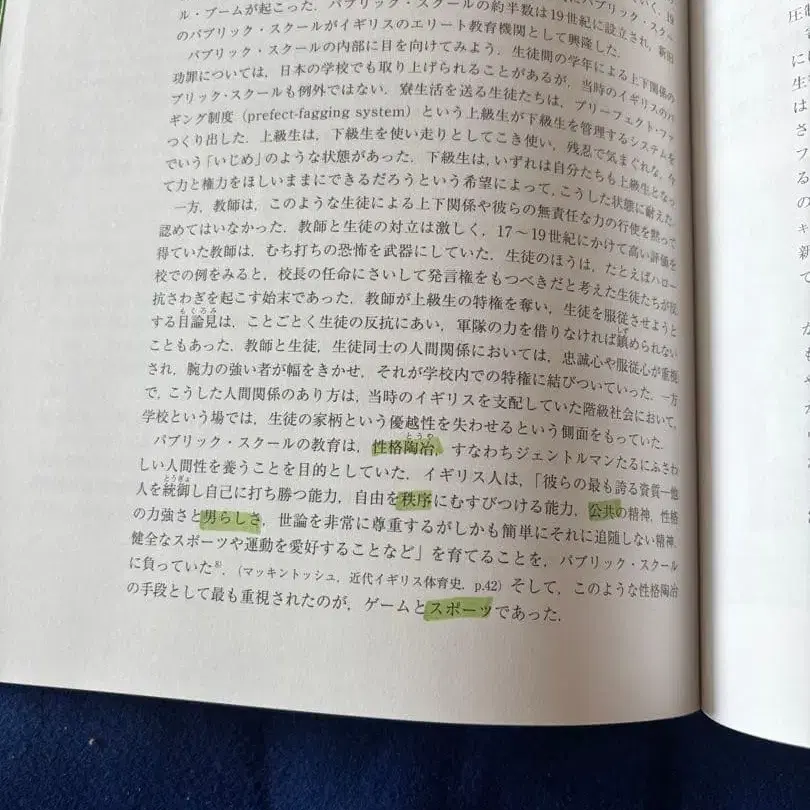 ル・ブームが起こった.パブリック・スクールの約半数は19世紀に設立され,新旧
のパブリック・スクールがイギリスのエリート教育機関として興隆した.
パブリック・スクールの内部に目を向けてみよう.生徒間の学年による上下関係の
功罪については,日本の学校でも取り上げられることがあるが,当時のイギリスのパ
ブリック・スクールも例外ではない.寮生活を送る生徒たちは,プリーフェクト・ファ
ギング制度(prefect-fagging system)という上級生が下級生を管理するシステムを
つくり出した.上級生は,下級生を使い走りとしてこき使い,残忍で気まぐれな,今
でいう「いじめ」のような状態があった.下級生は,いずれは自分たちも上級生となっ
て力と権力をほしいままにできるだろうという希望によって,こうした状態に耐えた.
一方,教師は,このような生徒による上下関係や彼らの無責任な力の行使を黙って
認めてはいなかった.教師と生徒の対立は激しく,17~19世紀にかけて高い評価を
得ていた教師は,むち打ちの恐怖を武器にしていた.生徒のほうは,たとえばハロー
校での例をみると,校長の任命にさいして発言権をもつべきだと考えた生徒たちが反
抗さわぎを起こす始末であった.教師が上級生の特権を奪い,生徒を服従させようと
する目論見は,ことごとく生徒の反抗にあい,軍隊の力を借りなければ鎮められない
こともあった.教師と生徒,生徒同士の人間関係においては,忠誠心や服従心が重視
され,腕力の強い者が幅をきかせ,それが学校内での特権に結びついていった.一方
で,こうした人間関係のあり方は,当時のイギリスを支配していた階級社会において,
学校という場では,生徒の家柄という優越性を失わせるという側面をもっていた.
パブリック・スクールの教育は,性格陶冶,すなわちジェントルマンたるにふさわ
しい人間性を養うことを目的としていた.イギリス人は,「彼らの最も誇る資質―他
人を統御し自己に打ち勝つ能力,自由を秩序にむすびつける能力,公共の精神,性格
の力強さと男らしさ,世論を非常に尊重するがしかも簡単にそれに追随しない精神,
健全なスポーツや運動を愛好することなど」を育てることを,パブリック・スクール
に負っていた⁸⁾.(マッキントッシュ,近代イギリス体育史,p.42)そして,このような性格陶冶
の手段として最も重視されたのが,ゲームとスポーツであった.